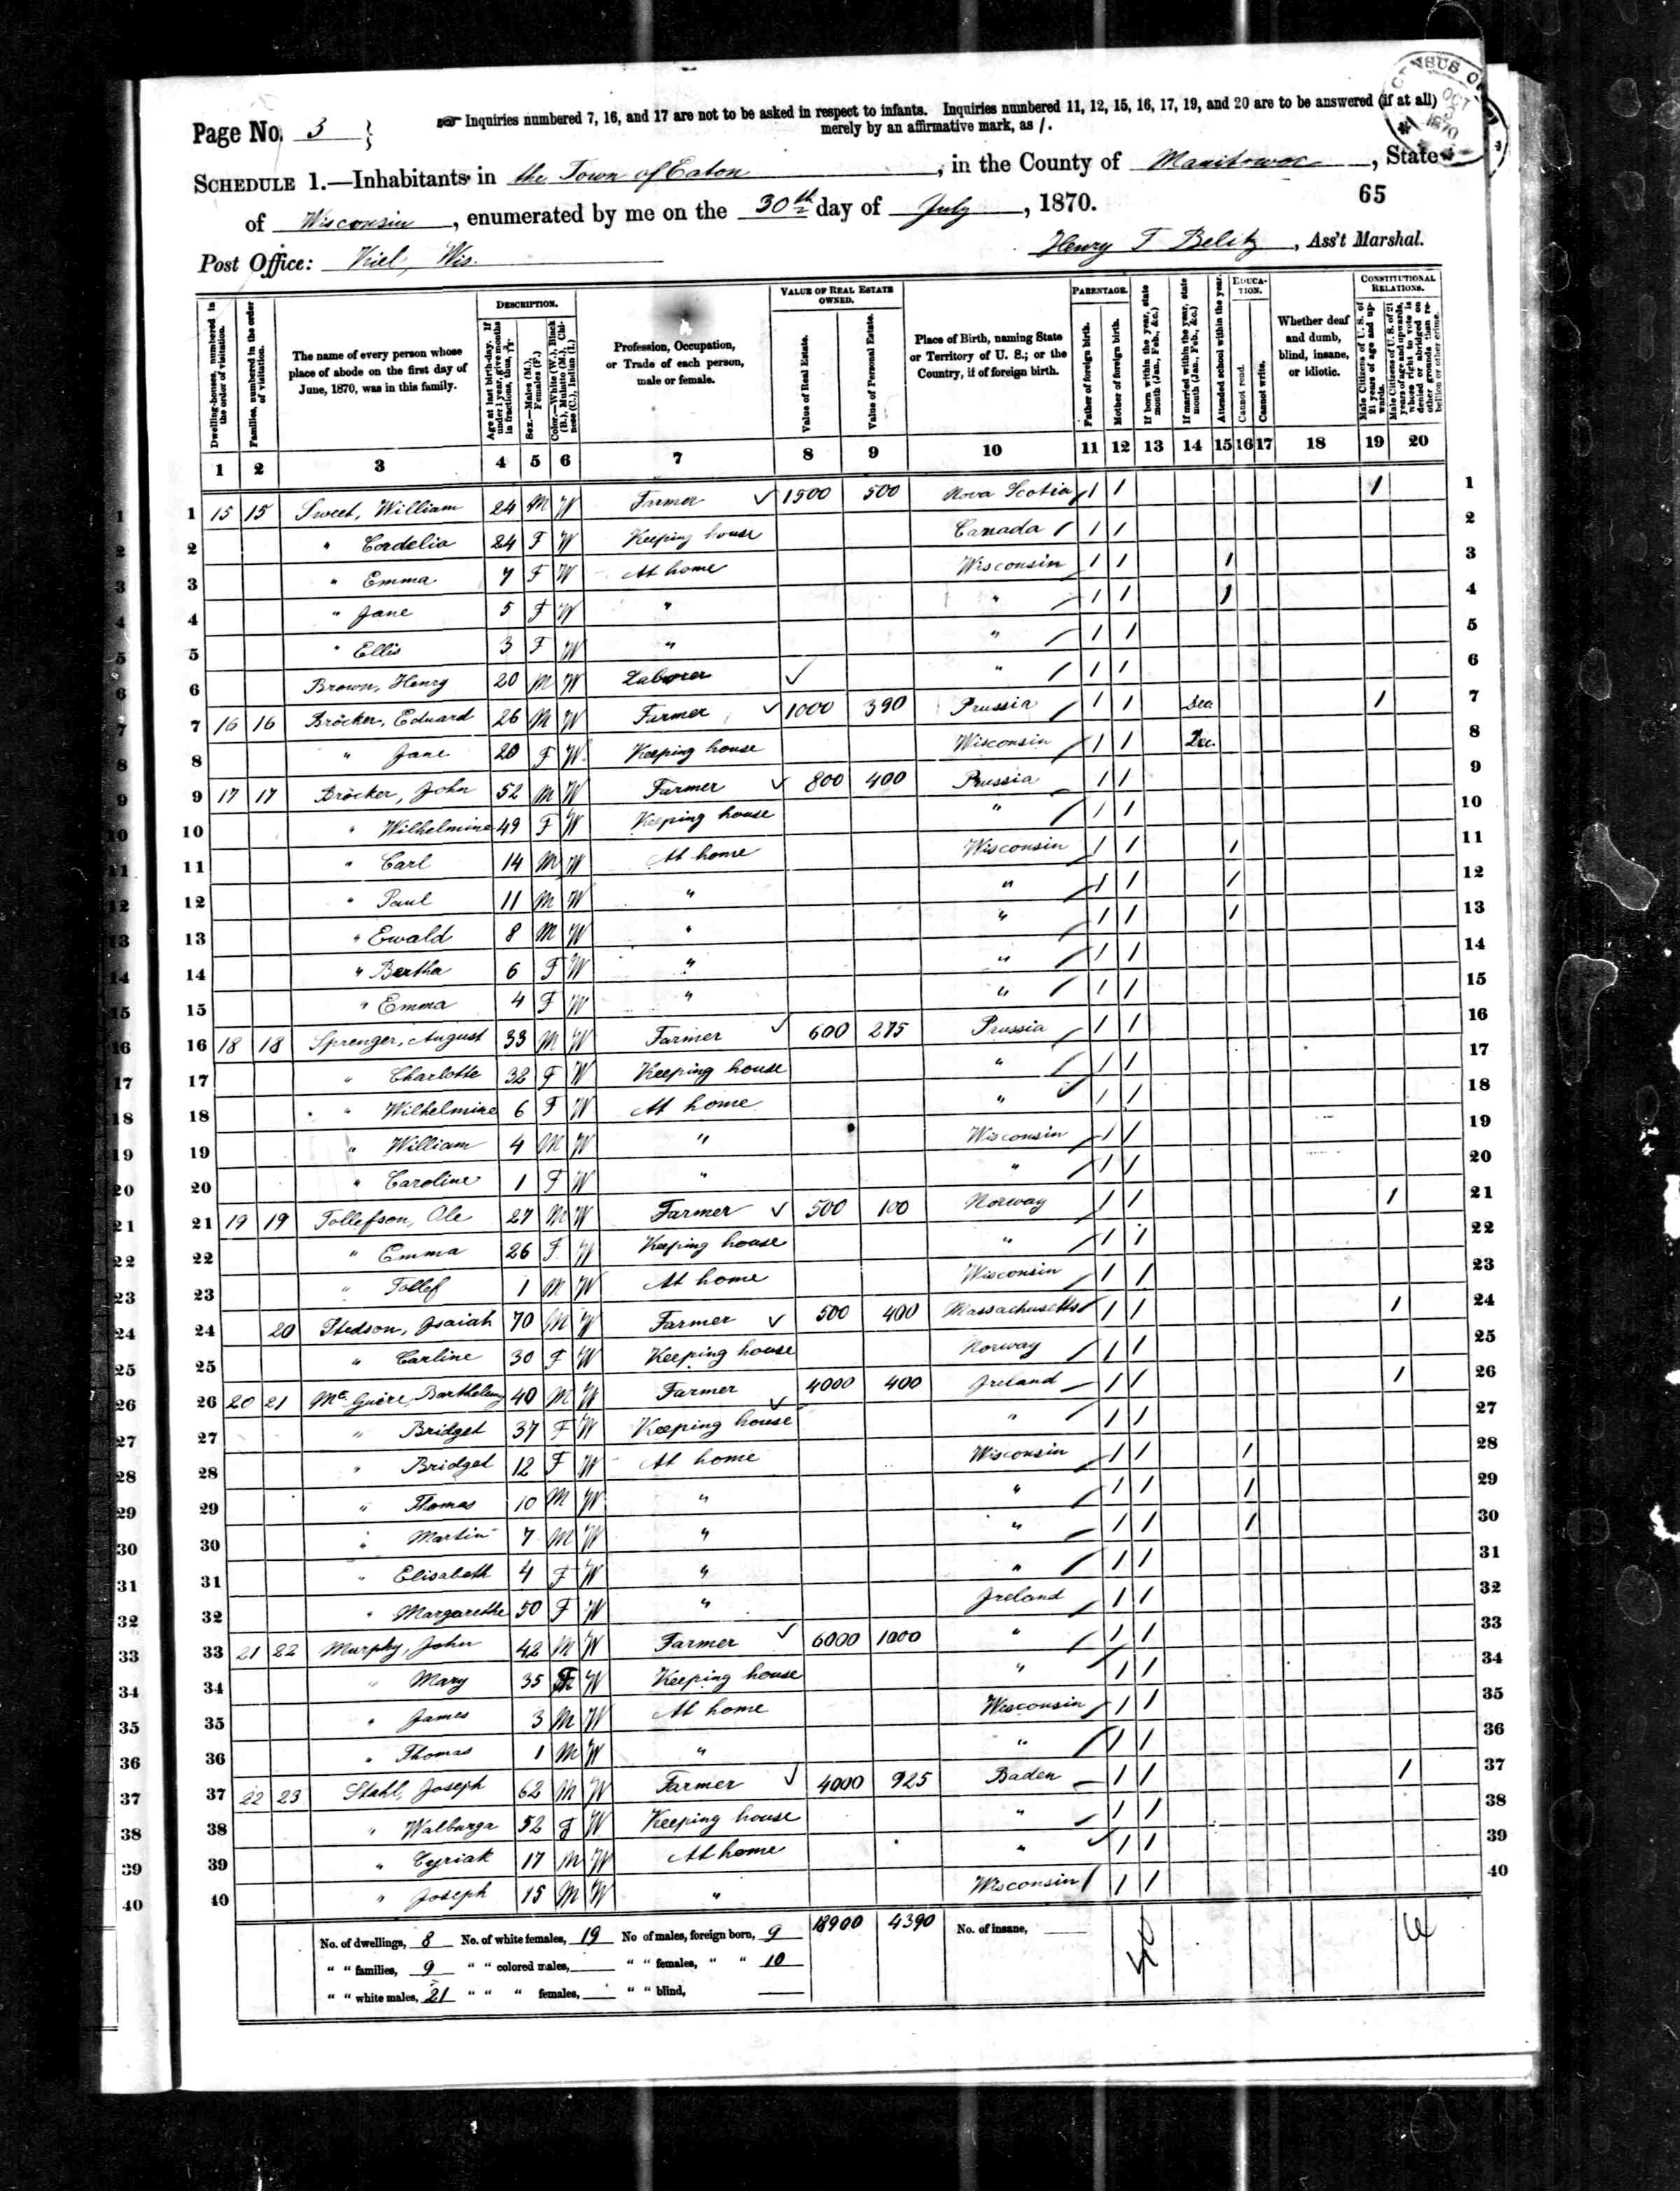 Page No. 3
Inquiries numbered 7, 16, and 17 are not to be asked in respect to infants. Inquiries numbered 11, 12, 15, 16, 17, 19, and 20 are to be answered (if at all)
merely by an affirmative mark, as /.
CENSUS OF
OCT
1870
SCHEDULE 1.—Inhabitants in the Town of Eaton, in the County of Manitowoc, State
of Wisconsin, enumerated by me on the 30th day of July, 1870.
65
Post Office: Kiel, Wis.
Henry F Belitz, Ass't Marshal.
Dwelling-houses, numbered in the order of visitation.
Families, numbered in the order of visitation.
The name of every person whose place of abode on the first day of June, 1870, was in this family.
DESCRIPTION.
Age at last birth-day. If under 1 year, give months in fractions, thus, 3/12.
Sex.—Males (M.), Females (F.)
Color.—White (W.), Black (B.), Mulatto (M.), Chinese (C.), Indian (I.)
Profession, Occupation, or Trade of each person, male or female.
VALUE OF REAL ESTATE OWNED.
Value of Real Estate.
Value of Personal Estate.
Place of Birth, naming State or Territory of U. S.; or the Country, if of foreign birth.
PARENTAGE.
Father of foreign birth.
Mother of foreign birth.
If born within the year, state month (Jan., Feb., &c.)
If married within the year, state month (Jan., Feb., &c.)
Attended school within the year.
EDUCATION.
Cannot read.
Cannot write.
Whether deaf and dumb, blind, insane, or idiotic.
CONSTITUTIONAL RELATIONS.
Male Citizens of U. S. of 21 years of age and upwards.
Male Citizens of U. S. of 21 years of age and upwards, whose right to vote is denied or abridged on other grounds than rebellion or other crime.
1 2 3 4 5 6 7 8 9 10 11 12 13 14 15 16 17 18 19 20
1 15 15 Sweet, William 24 M W Farmer ✓ 1500 500 Nova Scotia / / / 1
2 " Cordelia 24 F W Keeping house Canada / / 2
3 " Emma 7 F W At home Wisconsin / / / 3
4 " Jane 5 F W " " / / / 4
5 " Ellis 3 F W " " / / 5
6 Brown, Henry 20 M W Laborer ✓ " / / 6
7 16 16 Bröcker, Eduard 26 M W Farmer ✓ 1000 390 Prussia / / Dec / 7
8 " Jane 20 F W Keeping house Wisconsin / / Dec. 8
9 17 17 Bröcker, John 52 M W Farmer ✓ 800 400 Prussia / / 9
10 " Wilhelmine 49 F W Keeping house " / / 10
11 " Carl 14 M W At home Wisconsin / / / 11
12 " Paul 11 M W " " / / / 12
13 " Ewald 8 M W " " / / / 13
14 " Bertha 6 F W " " / / 14
15 " Emma 4 F W " " / / 15
16 18 18 Sprenger, August 33 M W Farmer ✓ 600 275 Prussia / / 16
17 " Charlotte 32 F W Keeping house " / / 17
18 " Wilhelmine 6 F W At home " / / 18
19 " William 4 M W " Wisconsin / / 19
20 " Caroline 1 F W " " / / 20
21 19 19 Tollefson, Ole 27 M W Farmer ✓ 500 100 Norway / / / 21
22 " Emma 26 F W Keeping house " / / 22
23 " Tollef 1 M W At home Wisconsin / / 23
24 20 Stedson, Isaiah 70 M W Farmer ✓ 500 400 Massachusetts / / / 24
25 " Carline 30 F W Keeping house Norway / / 25
26 20 21 McGuire, Barthelemy 40 M W Farmer ✓ 4000 400 Ireland / / / 26
27 " Bridget 37 F W Keeping house " / / 27
28 " Bridget 12 F W At home Wisconsin / / / 28
29 " Thomas 10 M W " " / / / 29
30 " Martin 7 M W " " / / / 30
31 " Elisabeth 4 F W " " / / 31
32 " Margarethe 50 F W " Ireland / / 32
33 21 22 Murphy, John 42 M W Farmer ✓ 6000 1000 " / / 33
34 " Mary 35 F W Keeping house " / / 34
35 " James 3 M W At home Wisconsin / / 35
36 " Thomas 1 M W " " / / 36
37 22 23 Stahl, Joseph 62 M W Farmer ✓ 4000 925 Baden / / / 37
38 " Walburga 52 F W Keeping house " / / 38
39 " Cyriak 17 M W At home " / / 39
40 " Joseph 15 M W " Wisconsin / / 40
No. of dwellings, 8 No. of white females, 19 No of males, foreign born, 9 18900 4390 No. of insane,
" " families, 9 " " colored males, " " females, " " 10
" " white males, 21 " " " females, " " blind,
40
6